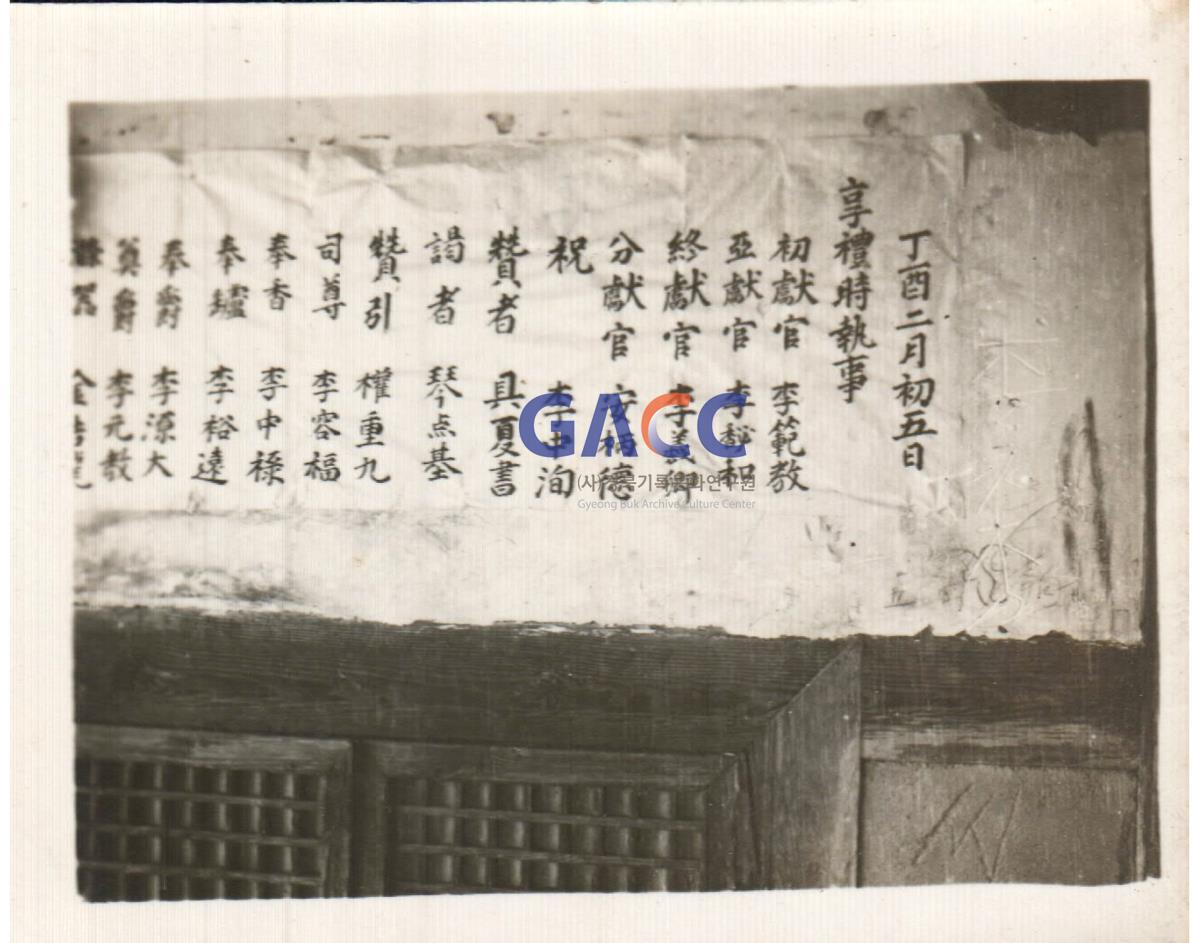 丁酉二月初五日
享禮時執事
初獻官 李範教
亞獻官 李
終獻官 李義卿
分獻官 安柄德
祝 李中洵
贊者 具夏書
謁者 琴点基
贊引 權重九
司尊 李容福
奉香 李中祿
奉爐 李裕遠
奉爵 李源大
奠爵 李元教
GACC
(사)경북기록문화연구원
Gyeong Buk Archive Culture Center